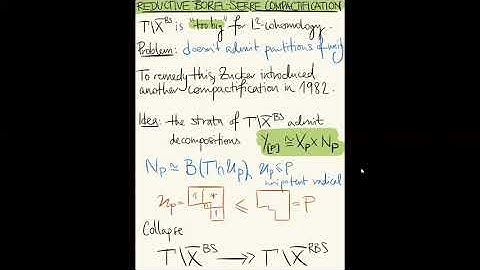 REDUCTIVE BOREL-SERRE COMPACTIFICATION
Γ\X̄^BS is "too big" for L²-cohomology.
Problem: doesn't admit partitions of unity
To remedy this, Zucker introduced
another compactification in 1982.
Idea: the strata of Γ\X̄^BS admit
decompositions Y_[P] ≅ X_P × N_P
N_P ≃ B(Γ∩U_P), U_P ≤ P
unipotent radical
U_P = ≤ = P
Collapse
Γ\X̄^BS ↠ Γ\X̄^RBS